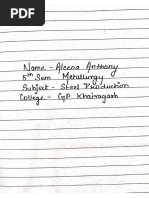 Name - Aleena Anthony
5th Sem Metallurgy
Subject - Steel Production
College - GP Khairagarh